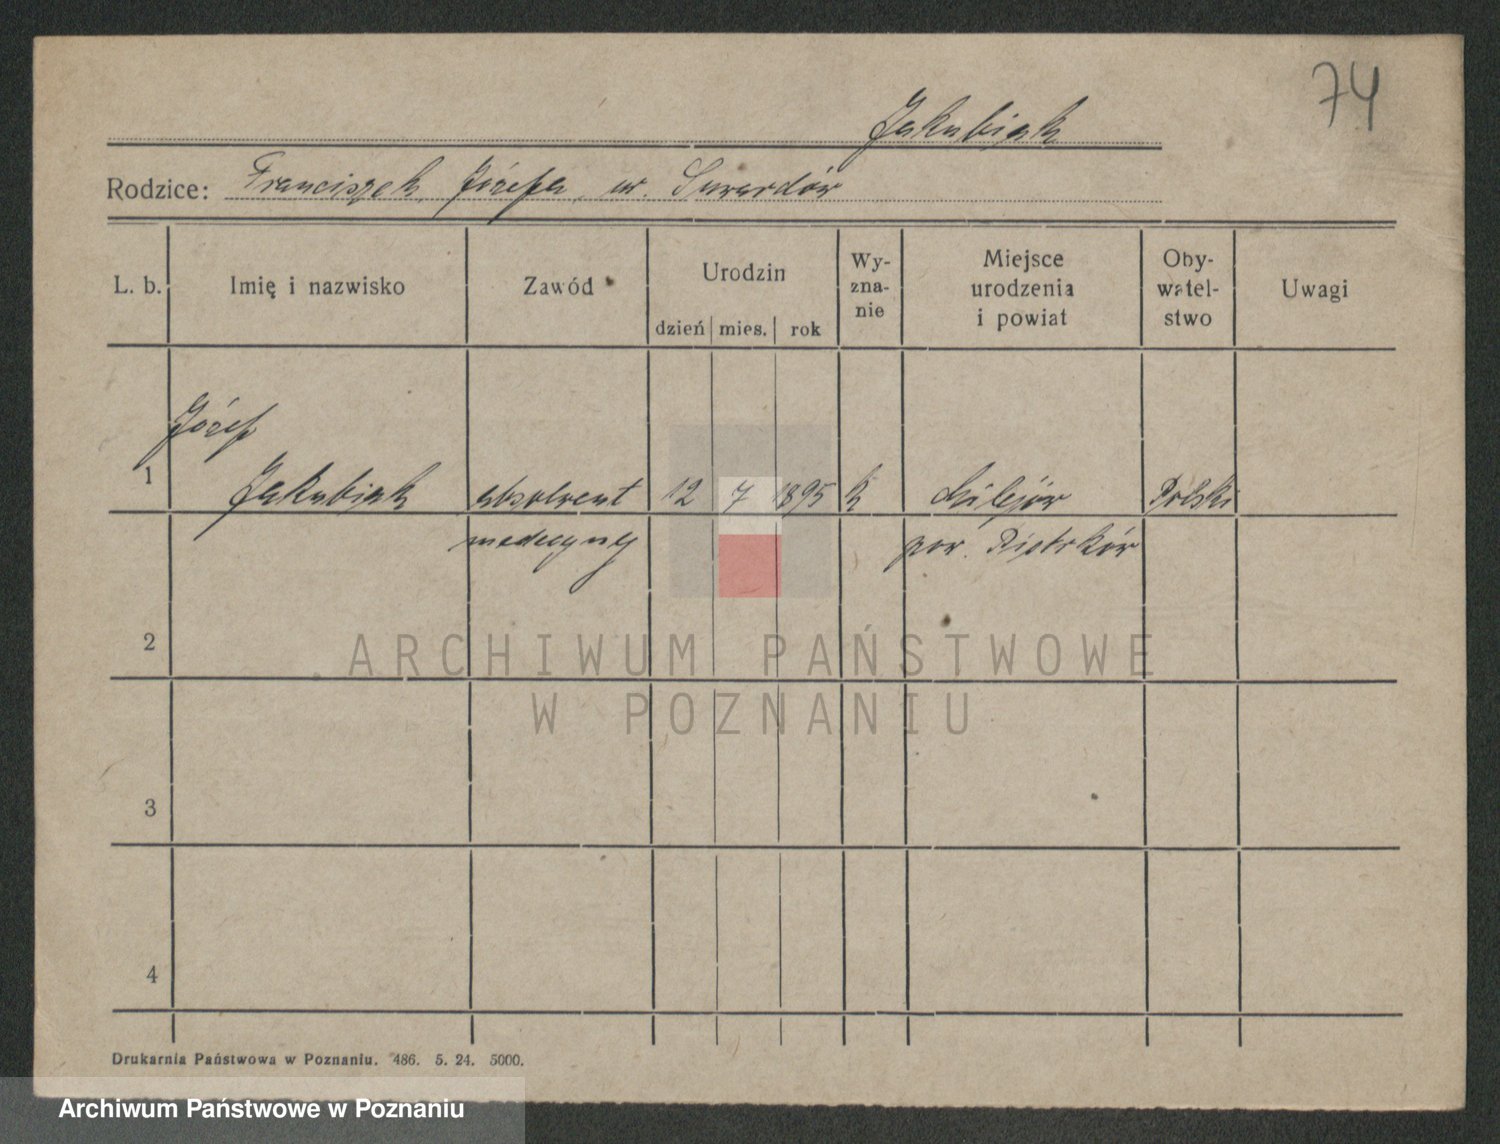 74
Jakubiak
Rodzice: Franciszek, Józefa, ur.
L. b. Imię i nazwisko Zawód Urodzin Wy-zna-nie Miejsce urodzenia i powiat Oby-watel-stwo Uwagi
dzień mies. rok
Józef
1 Jakubiak absolwent 12 7 1895 k Milejów Polski
medycyny pow. Piotrków
2
ARCHIWUM PAŃSTWOWE
W POZNANIU
3
4
Drukarnia Państwowa w Poznaniu. 486. 5. 24. 5000.
Archiwum Państwowe w Poznaniu